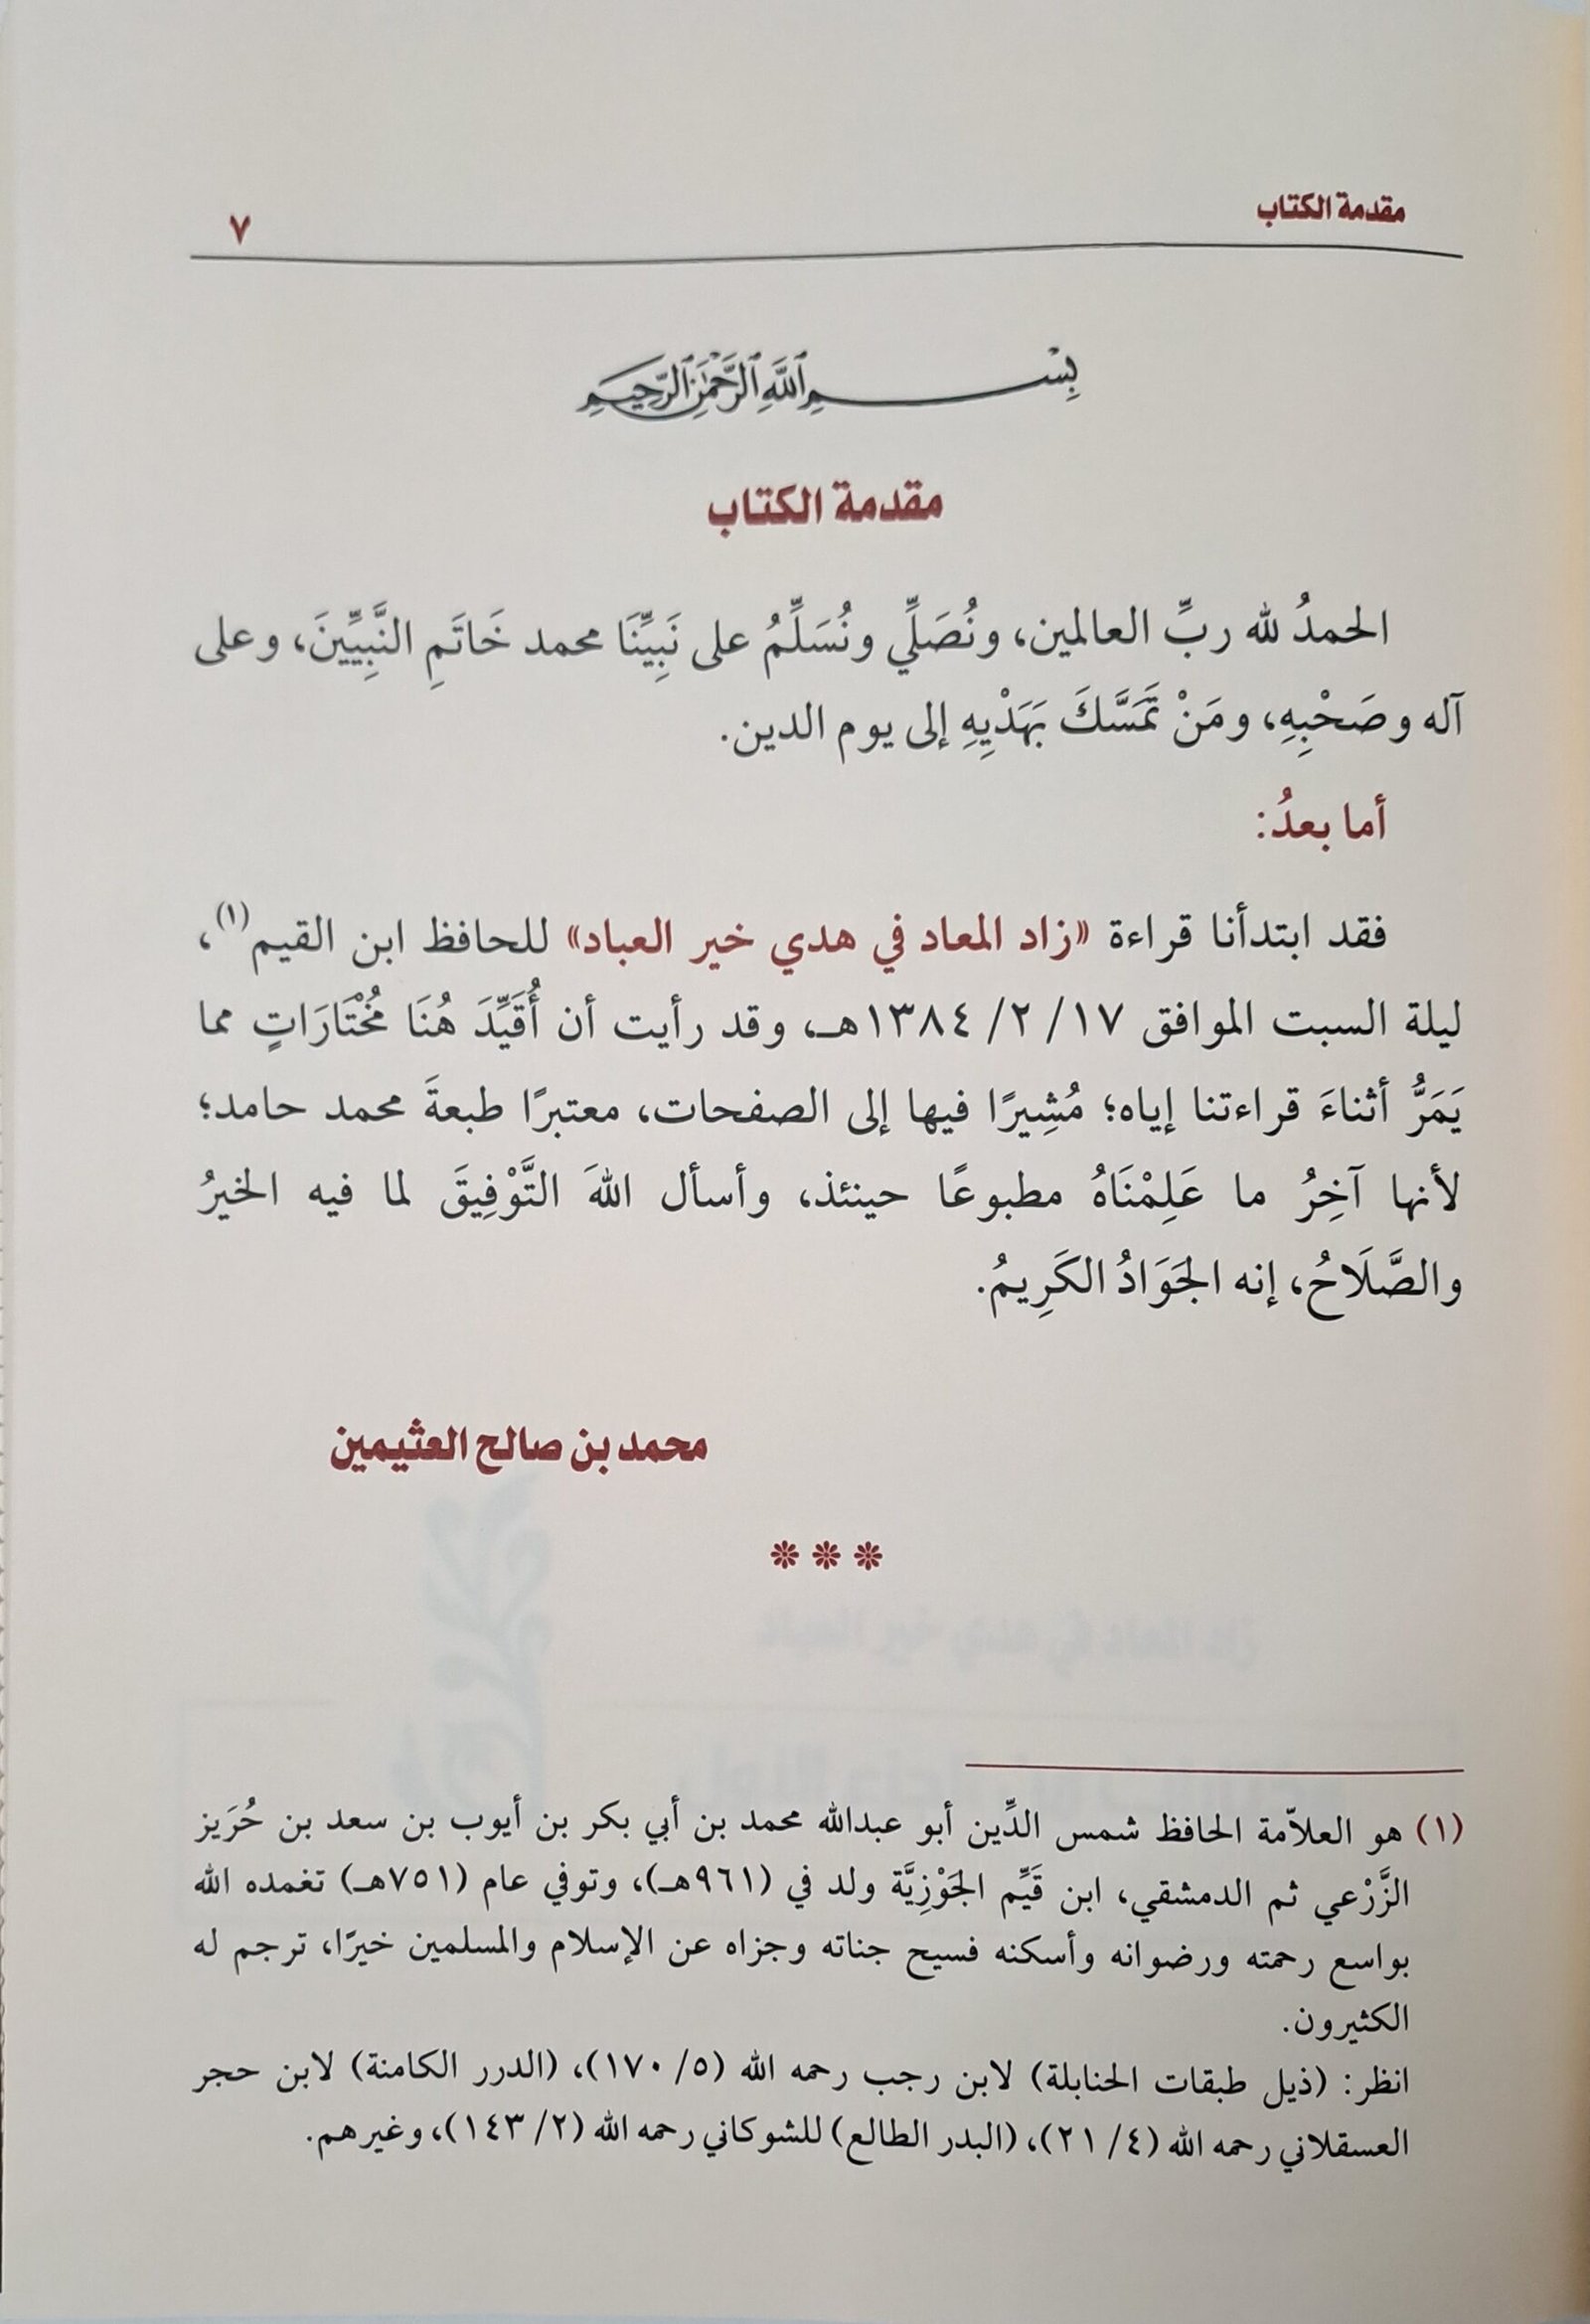 مقدمة الكتاب
٧
بِسْمِ ٱللَّهِ ٱلرَّحْمَٰنِ ٱلرَّحِيمِ
مقدمة الكتاب
الحمدُ لله ربِّ العالمين، ونُصَلِّي ونُسَلِّمُ على نَبِيِّنَا محمد خَاتَمِ النَّبِيِّينَ، وعلى
آله وصَحْبِهِ، ومَنْ تَمَسَّكَ بِهَدْيِهِ إلى يوم الدين.
أما بعدُ:
فقد ابتدأنا قراءة «زاد المعاد في هدي خير العباد» للحافظ ابن القيم(١)،
ليلة السبت الموافق ١٧/ ٢/ ١٣٨٤هـ، وقد رأيت أن أُقَيِّدَ هُنَا مُخْتَارَاتٍ مما
يَمَرُّ أثناءَ قراءتنا إياه؛ مُشِيرًا فيها إلى الصفحات، معتبرًا طبعةَ محمد حامد؛
لأنها آخِرُ ما عَلِمْنَاهُ مطبوعًا حينئذ، وأسأل اللهَ التَّوْفِيقَ لما فيه الخيرُ
والصَّلَاحُ، إنه الجَوَادُ الكَرِيمُ.
محمد بن صالح العثيمين
(١) هو العلاّمة الحافظ شمس الدِّين أبو عبدالله محمد بن أبي بكر بن أيوب بن سعد بن حُرَيز
الزَّرْعي ثم الدمشقي، ابن قَيِّم الجَوْزِيَّة ولد في (٩٦١هـ)، وتوفي عام (٧٥١هـ) تغمده الله
بواسع رحمته ورضوانه وأسكنه فسيح جناته وجزاه عن الإسلام والمسلمين خيرًا، ترجم له
الكثيرون.
انظر: (ذيل طبقات الحنابلة) لابن رجب رحمه الله (٥/ ١٧٠)، (الدرر الكامنة) لابن حجر
العسقلاني رحمه الله (٤/ ٢١)، (البدر الطالع) للشوكاني رحمه الله (٢/ ١٤٣)، وغيرهم.